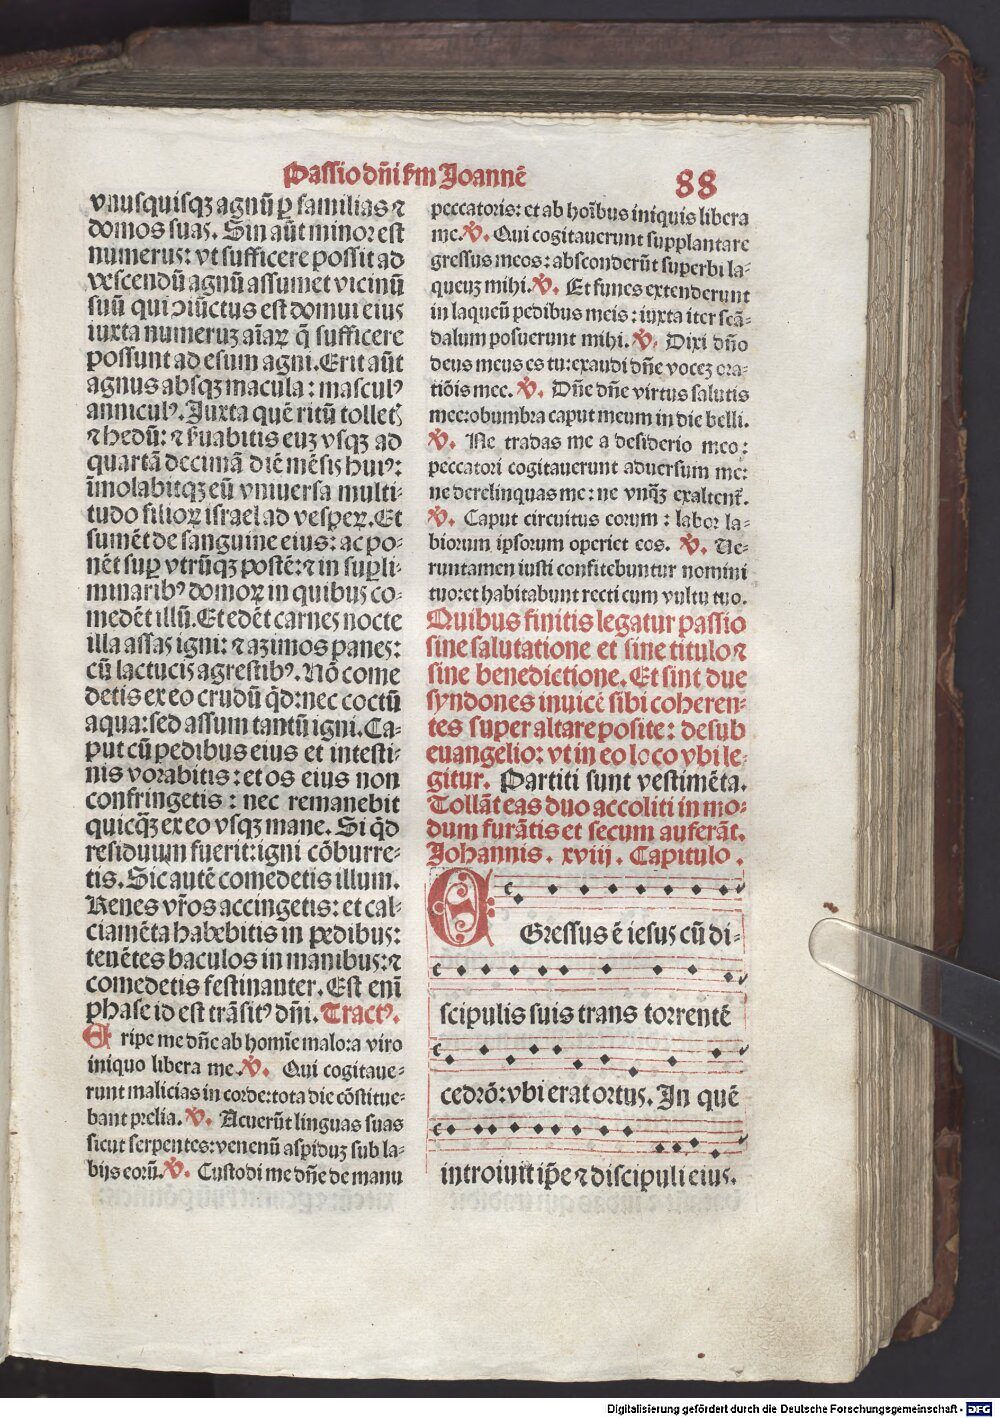 Passio dñi ẜm Joannē
88
vnusquisqꝫ agnū ꝑ familias ⁊
domos suas. Sin aūt minor est
numerus: vt sufficere possit ad
vescendū agnū assumet vicinū
suū qui ↄiūctus est domui eius
iuxta numeruꝫ aīaꝝ q̄ sufficere
possunt ad esum agni. Erit aūt
agnus absqꝫ macula: masculꝰ
anniculꝰ. Juxta quē ritū tolletꝭ
⁊ hedū: ⁊ ẜuabitis euꝫ vsqꝫ ad
quartā decimā diē mēsis huiꝰ:
īmolabitqꝫ eū vniuersa multi-
tudo filioꝝ israel ad vesperꝫ. Et
sumēt de sanguine eius: ac po-
nēt suꝑ vtrūqꝫ postē: ⁊ in suꝑli-
minaribꝰ domoꝝ in quibus co-
medēt illū. Et edēt carnes nocte
illa assas igni: ⁊ azimos panes:
cū lactucis agrestibꝰ. Nō come
detis ex eo crudū q̄d: nec coctū
aqua: sed assum tantū igni. Ca-
put cū pedibus eius et intesti-
nis vorabitis: et os eius non
confringetis: nec remanebit
quicq̄ꝫ ex eo vsqꝫ mane. Si q̄d
residuum fuerit: igni cōburre-
tis. Sic autē comedetis illum.
Renes vr̄os accingetis: et cal-
ciamēta habebitis in pedibus:
tenētes baculos in manibus: ⁊
comedetis festinanter. Est enī
phase id est trāsitꝰ dñi. Tractꝰ.
Eripe me dñe ab homīe malo: a viro
iniquo libera me. ℣. Qui cogitaue-
runt malicias in corde: tota die cōstitue-
bant prelia. ℣. Acuerūt linguas suas
sicut serpentes: venenū aspiduꝫ sub la-
bijs eorū. ℣. Custodi me dñe de manu
peccatoris: et ab hoībus iniquis libera
me. ℣. Qui cogitauerunt supplantare
gressus meos: absconderūt superbi la-
queuꝫ mihi. ℣. Et funes extenderunt
in laqueū pedibus meis: iuxta iter scā-
dalum posuerunt mihi. ℣. Dixi dño
deus meus es tu: exaudi dñe voceꝫ ora-
tiōis mee. ℣. Dñe dñe virtus salutis
mee: obumbra caput meum in die belli.
℣. Ne tradas me a desiderio meo:
peccatori cogitauerunt aduersum me:
ne derelinquas me: ne vnq̄ꝫ exaltent̄.
℣. Caput circuitus eorum: labor la-
biorum ipsorum operiet eos. ℣. Ue-
runtamen iusti confitebuntur nomini
tuo: et habitabunt recti cum vultu tuo.
Quibus finitis legatur passio
sine salutatione et sine titulo ⁊
sine benedictione. Et sint due
syndones inuicē sibi coheren-
tes super altare posite: de sub
euangelio: vt in eo loco vbi le-
gitur. Partiti sunt vestimēta.
Tollāt eas duo accoliti in mo-
dum furātis et secum auferāt.
Johannis. xviij. Capitulo.
EGressus ē iesus cū di-
scipulis suis trans torrentē
cedrō: vbi erat ortus. In quē
introiuit ip̄e ⁊ discipuli eius.
Digitalisierung gefördert durch die Deutsche Forschungsgemeinschaft - DFG